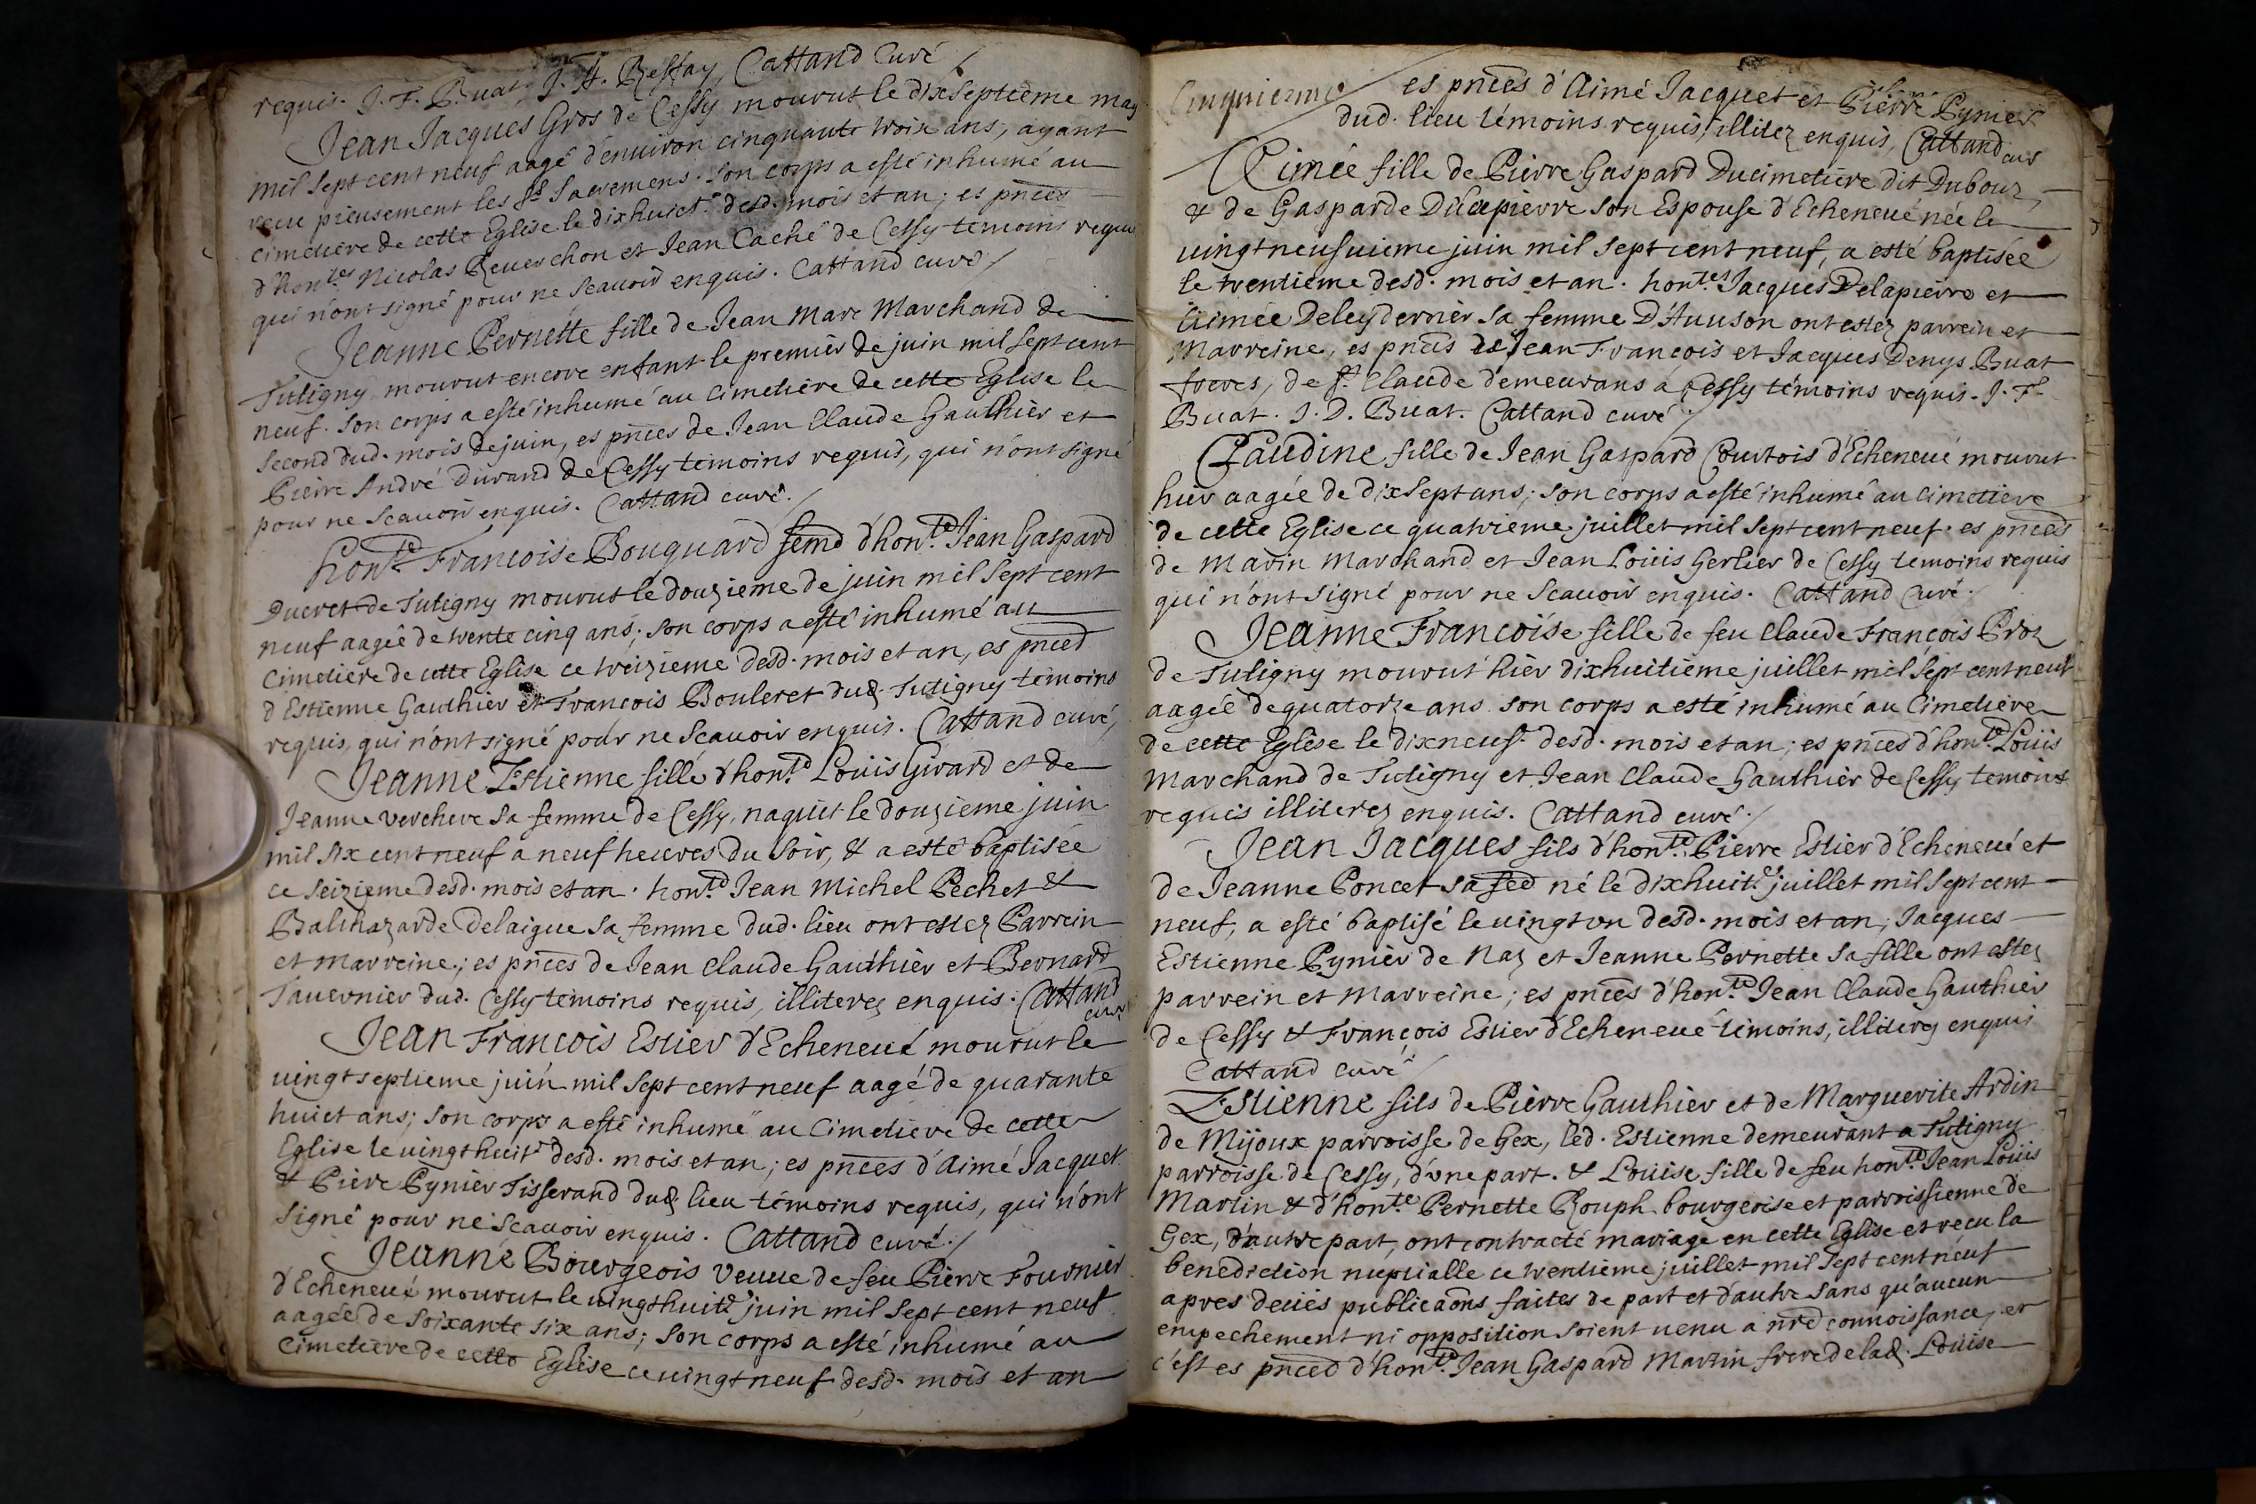 requis. J. F. Buat, J. A. Restay, Cattand Curé /
Jean Jacques Gros de Cessy mourut le dixseptième may
mil sept cent neuf aagé d'environ cinquante trois ans, ayant
receu pieusement les Sts Sacremens. Son corps a esté inhumé au
cimetiere de cette Eglise le dixhuict.e desd. mois et an; es pnces
d'hon.tes Nicolas Reverchon et Jean Caché de Cessy temoins requis
qui n'ont signé pour ne Scauoir enquis. Cattand curé /
Jeanne Pernette fille de Jean Marc Marchand de
Tutigny mourut encore enfant le premier de juin mil sept cent
neuf. Son corps a esté inhumé au Cimetière de cette Eglise le
second dud. mois de juin, es pnces de Jean Claude Gauthier et
Pierre André Durand de Cessy temoins requis, qui n'ont signé
pour ne Scauoir enquis. Cattand curé. /
hon.te Francoise Bouquard femd d'hon.te Jean Gaspard
Ducret de Tutigny mourut le douzieme de juin mil sept cent
neuf aagée de trente cinq ans; son corps a esté inhumé au
Cimetiere de cette Eglise ce treizieme desd. mois et an, es pnced
d'Estienne Gauthier et François Bouleret dud. Tutigny témoins
requis, qui n'ont signé pour ne Scauoir enquis. Cattand curé,
Jeanne Estienne fille d'hon.te Louis Girard et de
Jeanne verchere sa femme de Cessy, naquit le douzieme juin
mil six cent neuf a neuf heures du soir, & a esté baptisée
ce seizieme desd. mois et an. hon.te Jean Michel Pechet &
Balthazarde Delaigue sa femme dud. lieu ont estez Parrein
et marreine; es pnces de Jean Claude Gauthier et Bernard
Tauernier dud. Cessy temoins requis, illiterez enquis. Cattand
curé
Jean François Estier d'Echeneué mourut le
uingtseptieme juin mil sept cent neuf aagé de quarante
huict ans; son corps a esté inhumé au Cimetiere de cette
Eglise le uingthuit.e desd. mois et an; es pnces d'Aimé Jacquet
& Pierre Pynier Tisserand dud. lieu témoins requis, qui n'ont
signé pour ne Scauoir enquis. Cattand curé. /
Jeanne Bourgeois veuue de feu Pierre Fournier
d'Echeneué mourut le uingthuit.e juin mil sept cent neuf
aagée de soixante six ans; son corps a esté inhumé au
Cimetiere de cette Eglise ce uingtneuf desd. mois et an
Cinquieme es pnces d'Aimé Jacquet et Pierre Pynier
dud. lieu témoins requis, illitez enquis, Cattand curé
Aimée fille de Pierre Gaspard Ducimetiere dit Dubouz,
& de Gasparde Delapierre son Espouse d'Echeneué née le
uingtneufuieme juin mil sept cent neuf, a esté baptisée
le trentieme desd. mois et an. hon.tes Jacques Delapierre et
Aimée Deleydernier sa femme D'Auuson ont estez parrein et
Marreine, es pnces de Jean François et Jacques Denys Buat
freres, de St. Claude demeurans a Cessy témoins requis. J. F.
Buat. J. D. Buat. Cattand curé /
Claudine fille de Jean Gaspard Courtois d'Echeneué mourut
hier aagée de dixsept ans; son corps a esté inhumé au cimetiere
de cette Eglise ce quatrieme juillet mil sept cent neuf. es pnces
de Marin Marchand et Jean Louis Gerlier de Cessy temoins requis
qui n'ont signé pour ne Scauoir enquis. Cattand Curé. /
Jeanne Françoise fille de feu Claude François Proz
de Tutigny mourut hier dixhuitieme juillet mil sept cent neuf
aagée de quatorze ans. son corps a esté inhumé au Cimetiere
de cette Eglise le dixneuf.e desd. mois et an; es pnces d'hon.te Louis
Marchand de Tutigny et Jean Claude Gauthier de Cessy temoins
requis illiterez enquis. Cattand curé. /
Jean Jacques fils d'hon.te Pierre Estier d'Echeneué et
de Jeanne Poncet sa fed né le dixhuit.e juillet mil sept cent
neuf, a esté baptisé le uingt vn desd. mois et an, Jacques
Estienne Pynier de Naz et Jeanne Pernette sa fille ont estez
parrein et Marreine; es pnces d'hon.te Jean Claude Gauthier
de Cessy & François Estier d'Echeneué temoins, illiterez enquis
Cattand curé /
Estienne fils de Pierre Gauthier et de Marguerite Ardin
de Mijoux parroisse de Gex, led. Estienne demeurant a Tutigny
parroisse de Cessy, d'vne part. & Louise fille de feu hon.te Jean Louis
Martin & d'hon.te Pernette Rouph bourgeoise et parroissienne de
Gex, d'autre part, ont contracté mariage en cette Eglise et receu la
benediction nuptialle ce trentieme juillet mil sept cent neuf
apres deües publicaons faites de part et d'autre sans qu'aucun
empechement ni opposition soient uenu a nrd connoissance, et
c'est es pnced d'hon.te Jean Gaspard Martin frere de lad. Louise